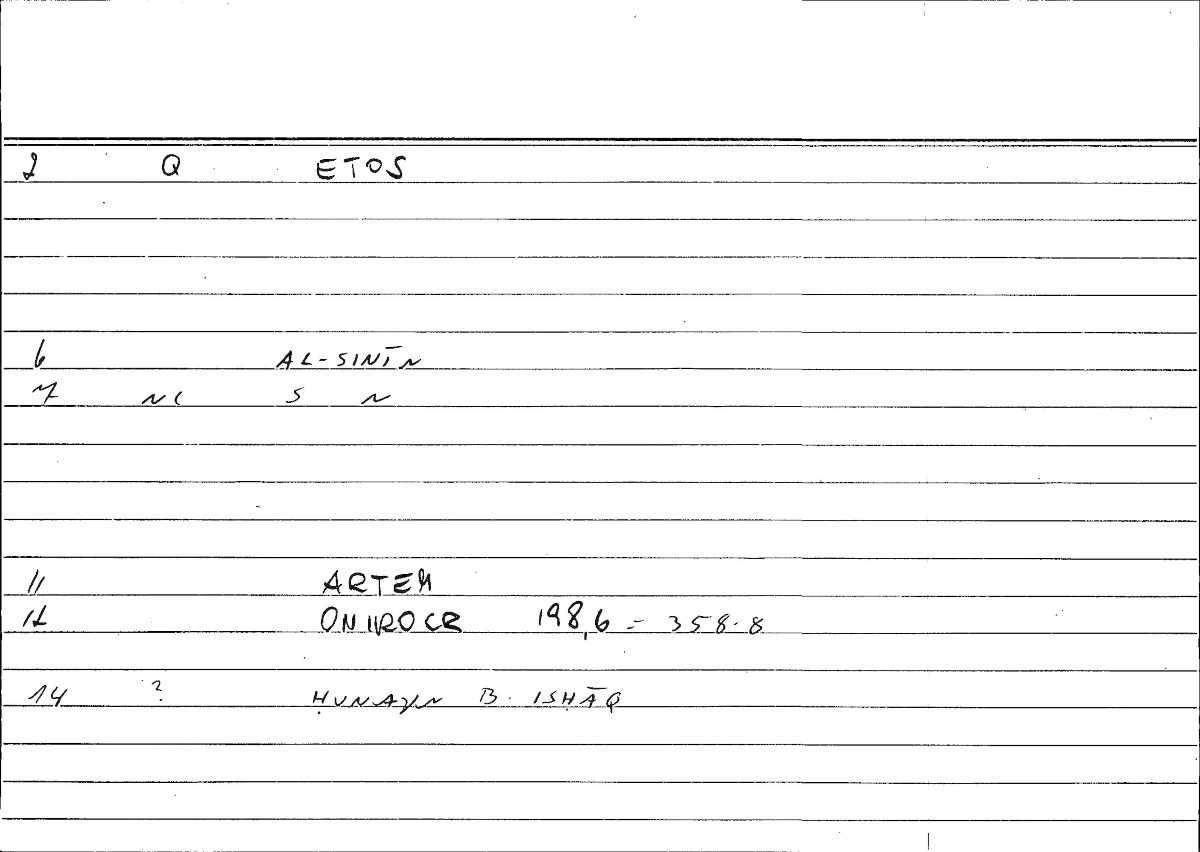 2 Q ETOS
6 AL-SINĪN
7 NC S N
11 ARTEM
12 ONIROCR 198,6 = 358.8
14 ? ḤUNAYN B. ISḤĀQ